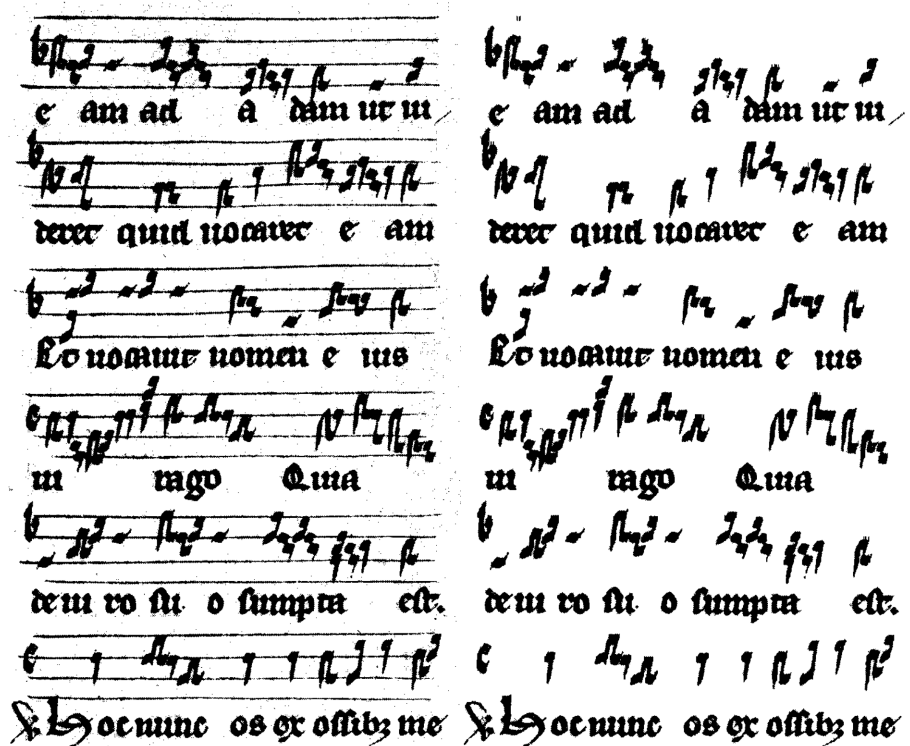 e am ad a dam ut ui
deret quid uocaret e am
Et uocauit nomen e ius
ui rago Quia
de ui ro su o sumpta est.
℣ Hoc nunc os ex ossibꝫ me
e am ad a dam ut ui
deret quid uocaret e am
Et uocauit nomen e ius
ui rago Quia
de ui ro su o sumpta est.
℣ Hoc nunc os ex ossibꝫ me